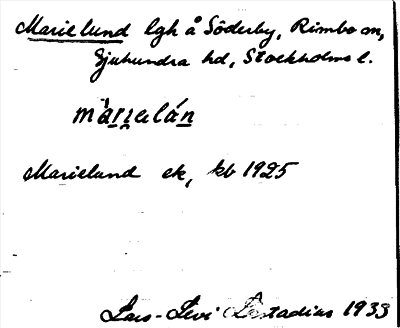 Marielund lgh å Söderby, Rimbo sn,
Sjuhundra hd, Stockholms l.
màrɪalán
Marielund ek, kb 1925
Lars-Levi Læstadius 1933